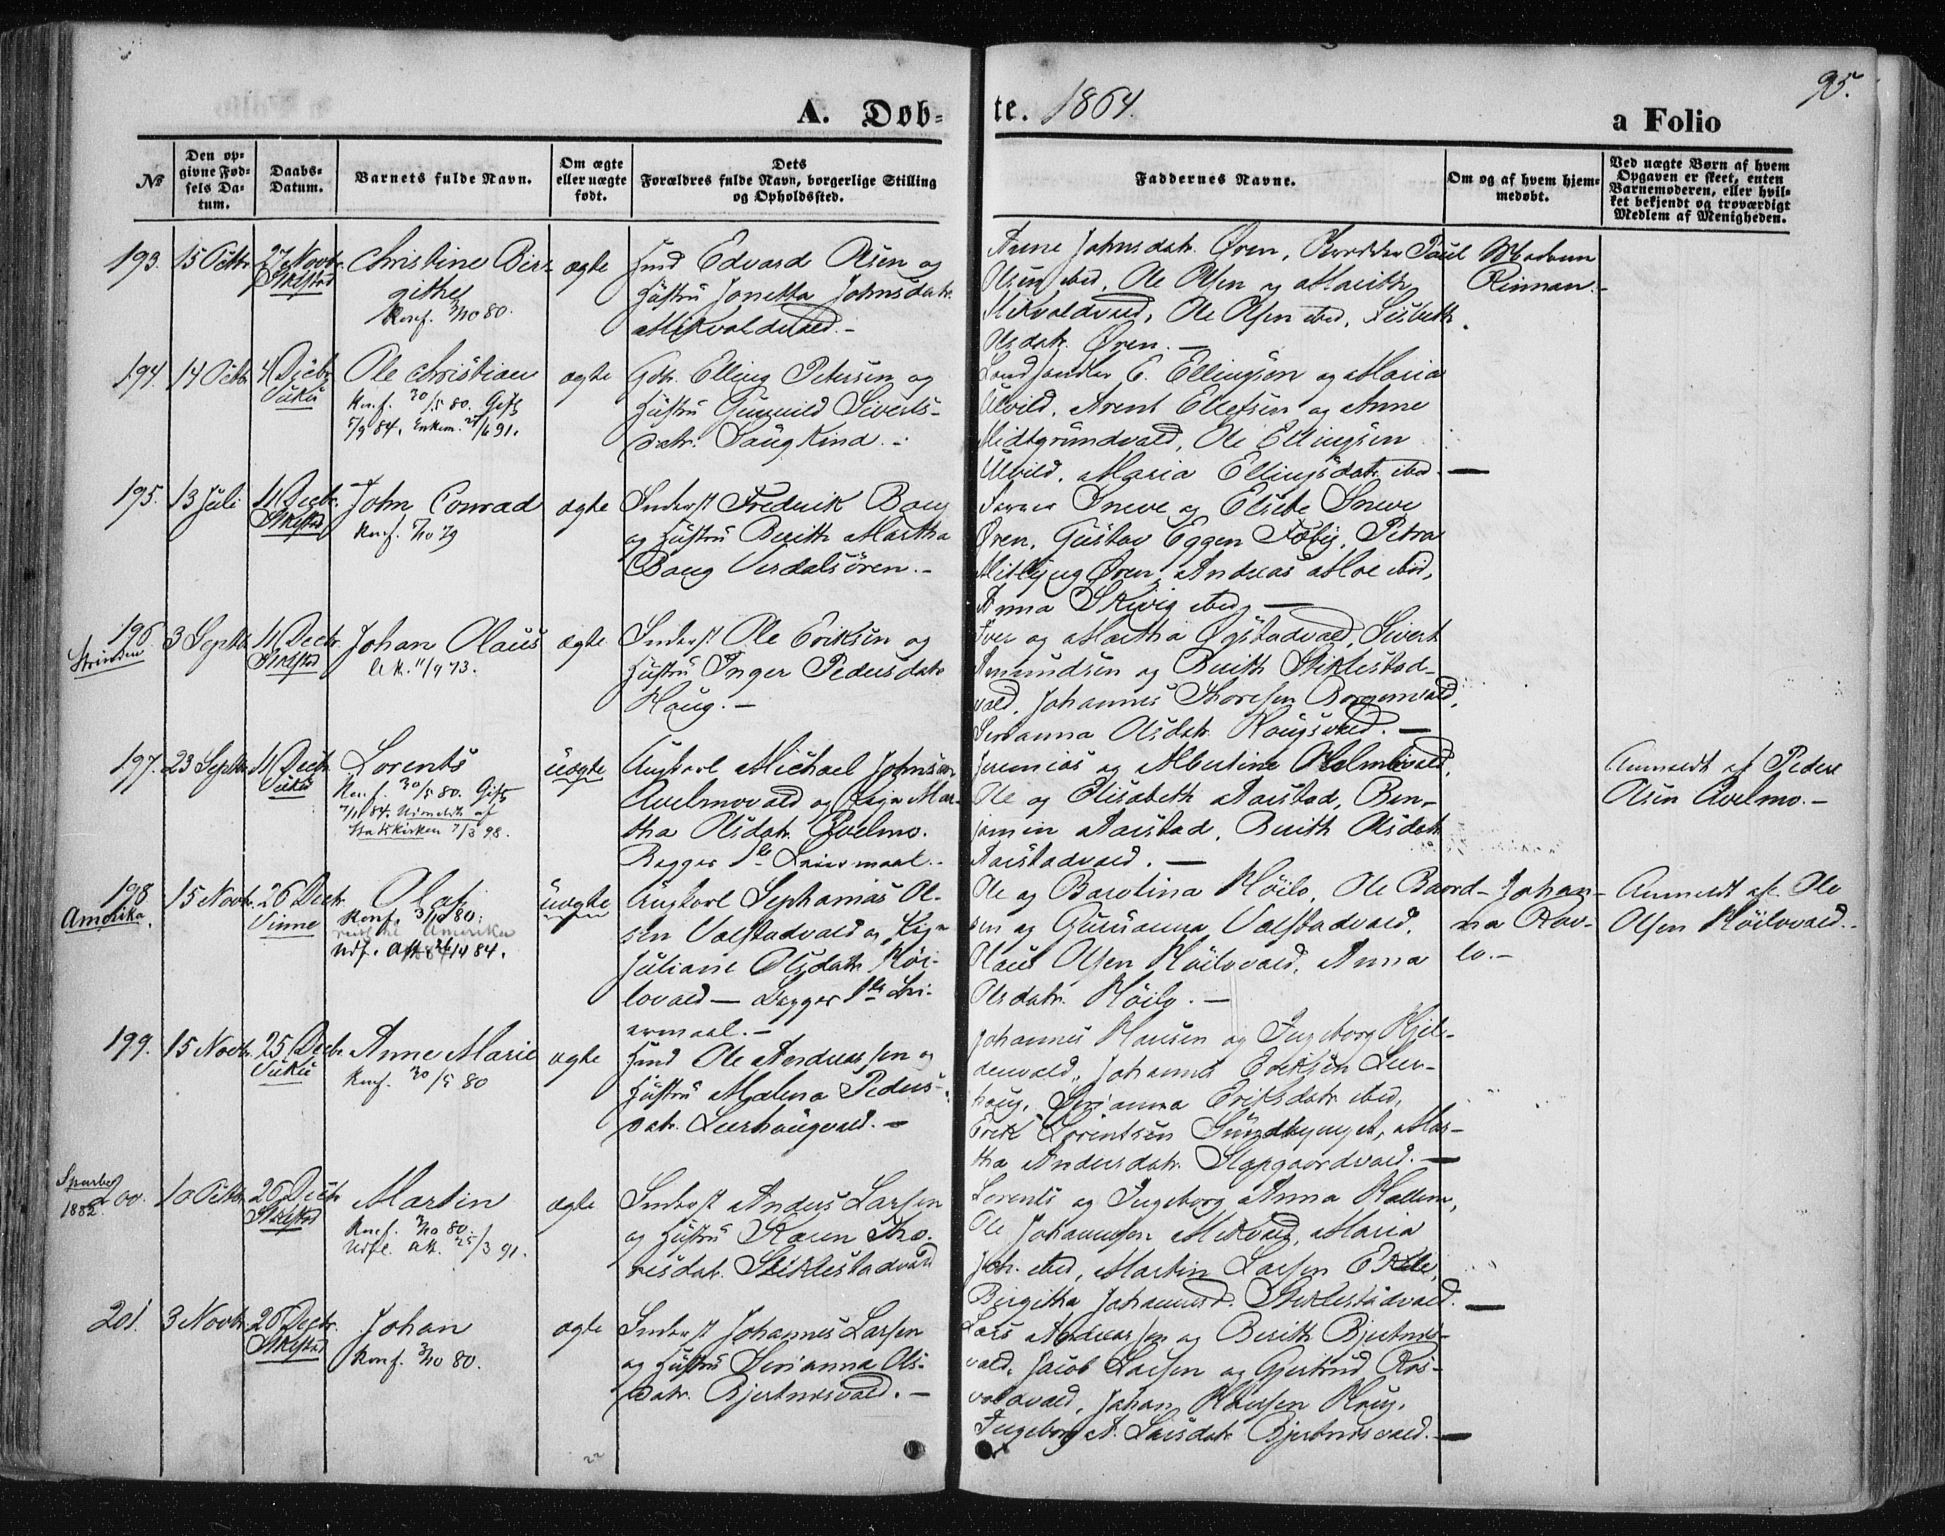 95.
A. Døb-
te. 1864.
a Folio
No
Den op-
givne Fød-
sels Da-
tum.
Daabs-
Datum.
Barnets fulde Navn.
Om ægte
eller uægte
født.
Dets
Forældres fulde Navn, borgerlige Stilling
og Opholdssted.
Faddernes Navne.
Om og af hvem hjem-
medøbt.
Ved uægte Børn af hvem
Opgaven er skeet, enten
Barnemoderen, eller hvil-
ket bekjendt og troværdigt
Medlem af Menigheden.
193. 15 Octbr. 27 Novbr. Stklstad
Christine Bir-
githe
Konf. 3/10 80.
ægte
Husmd Edvard Olsen og
Hustru Jonetta Johnsdatr.
Mikvoldvald.-
Anne Johnsdatr. Øren, Paul
Olsen ibid, Ole Olsen og Marith
Mikvoldvald, Ole Olsen ibid, Lisbeth
Olsdatr. Øren. —
Madam
Rinnan.
194. 14 Octbr 4 Decbr Vuku
Ole Christian
Konf. 30/5 80. Gift
5/9 84. Enkem. /6 91.
ægte
Gdbr. Elling Petersen og
Hustru Gunnild Siverts-
datr.
Landhandler E. Ellingsen og Maria
Ulvild, Arent Ellefsen og Anne
Midtgrundvald, Ole Ellingsen
Ulvild, Maria Ellingsdatr. ibid. —
195. 13 Juli 11 Decbr. Stklstad
John Conrad
Konf. 5/10 79
ægte
Inderst Frederik Boug
og Hustru Berith Martha
Boug Verdalsøren.-
Sneve og Elsebe Sneve
Øren, Gustav Eggen Petra
Øren, Andreas Moe ibid,
Anna Skevig ibid. —
196. Strinden 3 Septbr. 11 Decbr. Stklstad
Johan Olaus
11/4 73.
ægte
Inderst Ole Eriksen og
Hustru Inger Pedersdatr
Haug.-
Iver og Martha Øgstadvald, Sivert
Amundsen og Berith Stiklestad-
vald, Johannes Thoresen Borgenvald,
Serianna Olsdatr. Haugsvald. —
197. 23 Septbr. 11 Decbr. Vuku
Lorents
Konf. 30/5 80. Gift
7/11 84. Udmeldt af
Statskirken 7/3 98.
uægte
Ungkarl Michael Johnsen
Avelmovald og Pige Mar-
tha Olsdatr. Avelmo.
Begges 1ste Leiermaal.-
Jeremias og Albertine Holmlivald,
Ole og Elisabeth Aarstad, Ben-
jamin Aarstad, Berith Olsdatr
Aarstadvald. —
Anmeldt af Peder
Olsen Avelmo.-
198 Amerika. 15 Novbr. 26 Decbr. Vinne
Olaf
Konf. 3/10 80.
reist til Amerika
Udf. Att. 84.
uægte
Ungkarl Sephanias Ol-
sen Valstadvald og Pige
Juliane Olsdatr. Høi-
lovald — Begges 1ste Lei-
ermaal.-
Ole og Barolina Høilo, Ole Baard-
sen og Gurianna Valstadvald,
Olaus Olsen Høilovald, Anna
Olsdatr. Høilo. —
Johan-
na Kav-
lo.-
Anmeldt af Ole
Olsen Høilovald.
199. 15 Novbr. 25 Decbr. Vuku
Anne Marie
Konf. 30/5 80
ægte
Husmd Ole Andreassen og
Hustru Malena Peders-
datr. Leerhaugvald.-
Johannes Hansen og Ingeborg Kjel-
denvald, Johannes Eriksen Leer-
haug, Serianna Eriksdatr ibid,
Erik Lorentsen Sundbynget, Mar-
tha Andersdatr. Slapgaardvald. —
200. Sparbu 1882. 10 Octbr. 26 Decbr Stklstad
Martin
Konf. 3/10 80.
Udfl. Att. 25/3 91.
ægte
Inderst Anders Larsen
og Hustru Karen Tho-
resdatr. Stiklestadvald
Lorents og Ingeborg Anna Hallem,
Ole Johannesen Mikvald, Maria
Joh. ibid, Martin Larsen Ekle,
Birgitha Johannesd. Stiklestadvald. —
201. 3 Novbr. 26 Decbr. Stklstad
Johan
Konf. 3/10 80.
ægte
Inderst Johannes Larsen
og Hustru Serianna Ols-
datr. Bjertnæsvald.-
Lars Andreassen og Berith Bjertnæs-
vald, Jacob Larsen og Gjertrud Ros-
voldvald, Johan Hansen Haug,
Ingeborg A. Larsdatr. Bjertnæsvald. —